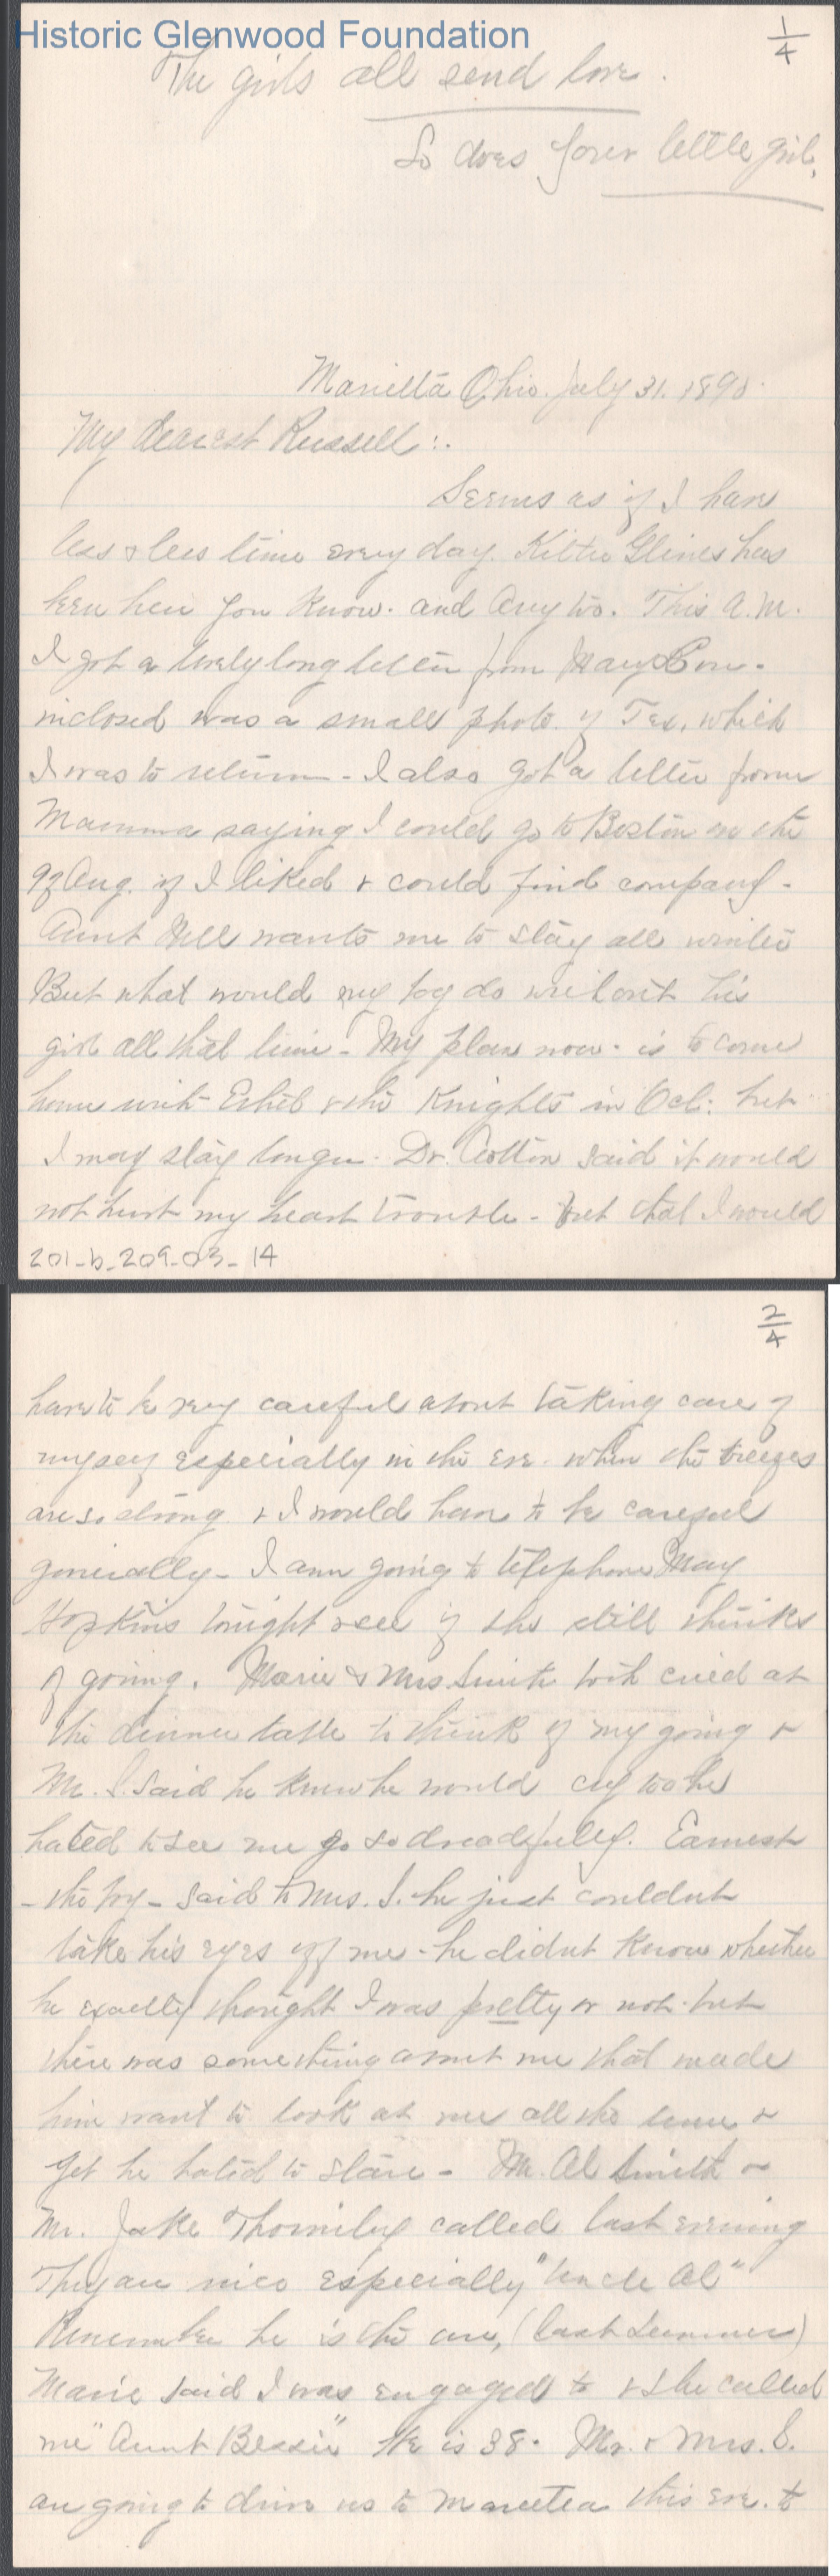 Historic Glenwood Foundation
1/4
The girls all send love.
So does your little girl.
Marietta Ohio. July 31. 1890.
My dearest Russell:.
Seems as if I have
less & less time every day. Kittie Glines has
been here you know. and Avy too. This A.M.
I got a lovely long letter from May Cone.
inclosed was a small photo. of Tex, which
I was to return - I also got a letter from
Mamma saying I could go to Boston on the
9 of Aug. if I liked & could find company -
Aunt Nell wants me to stay all winter
But what would my boy do without his
girl all that time - My plan now - is to come
home with Ethel & the Knights in Oct. but
I may stay longer. Dr. Cotton said it would
not hurt my heart trouble - but that I would
201-b-209-03-14
2/4
have to be very careful about taking care of
myself especially in the eve. when the breezes
are so strong & I would have to be careful
generally - I am going to telephone May
Hopkins tonight & see if she still thinks
of going. Marie & Mrs. Smith both cried at
the dinner table to think of my going &
Mr. S. said he knew he would cry too he
hated to see me go so dreadfully. Earnest
- the boy - said to Mrs. S. he just couldnt
take his eyes off me - he didnt know whether
he exactly thought I was pretty or not - but
there was something about me that made
him want to look at me all the time &
yet he hated to stare - Mr. Al Smith &
Mr. Jake Thornily called last evening
They are nice especially "Uncle Al"
Remember he is the one, (last Summer)
Marie said I was engaged to & she called
me "Aunt Bessie" He is 38. Mr. & Mrs. S.
are going to drive us to Marietta this eve. to